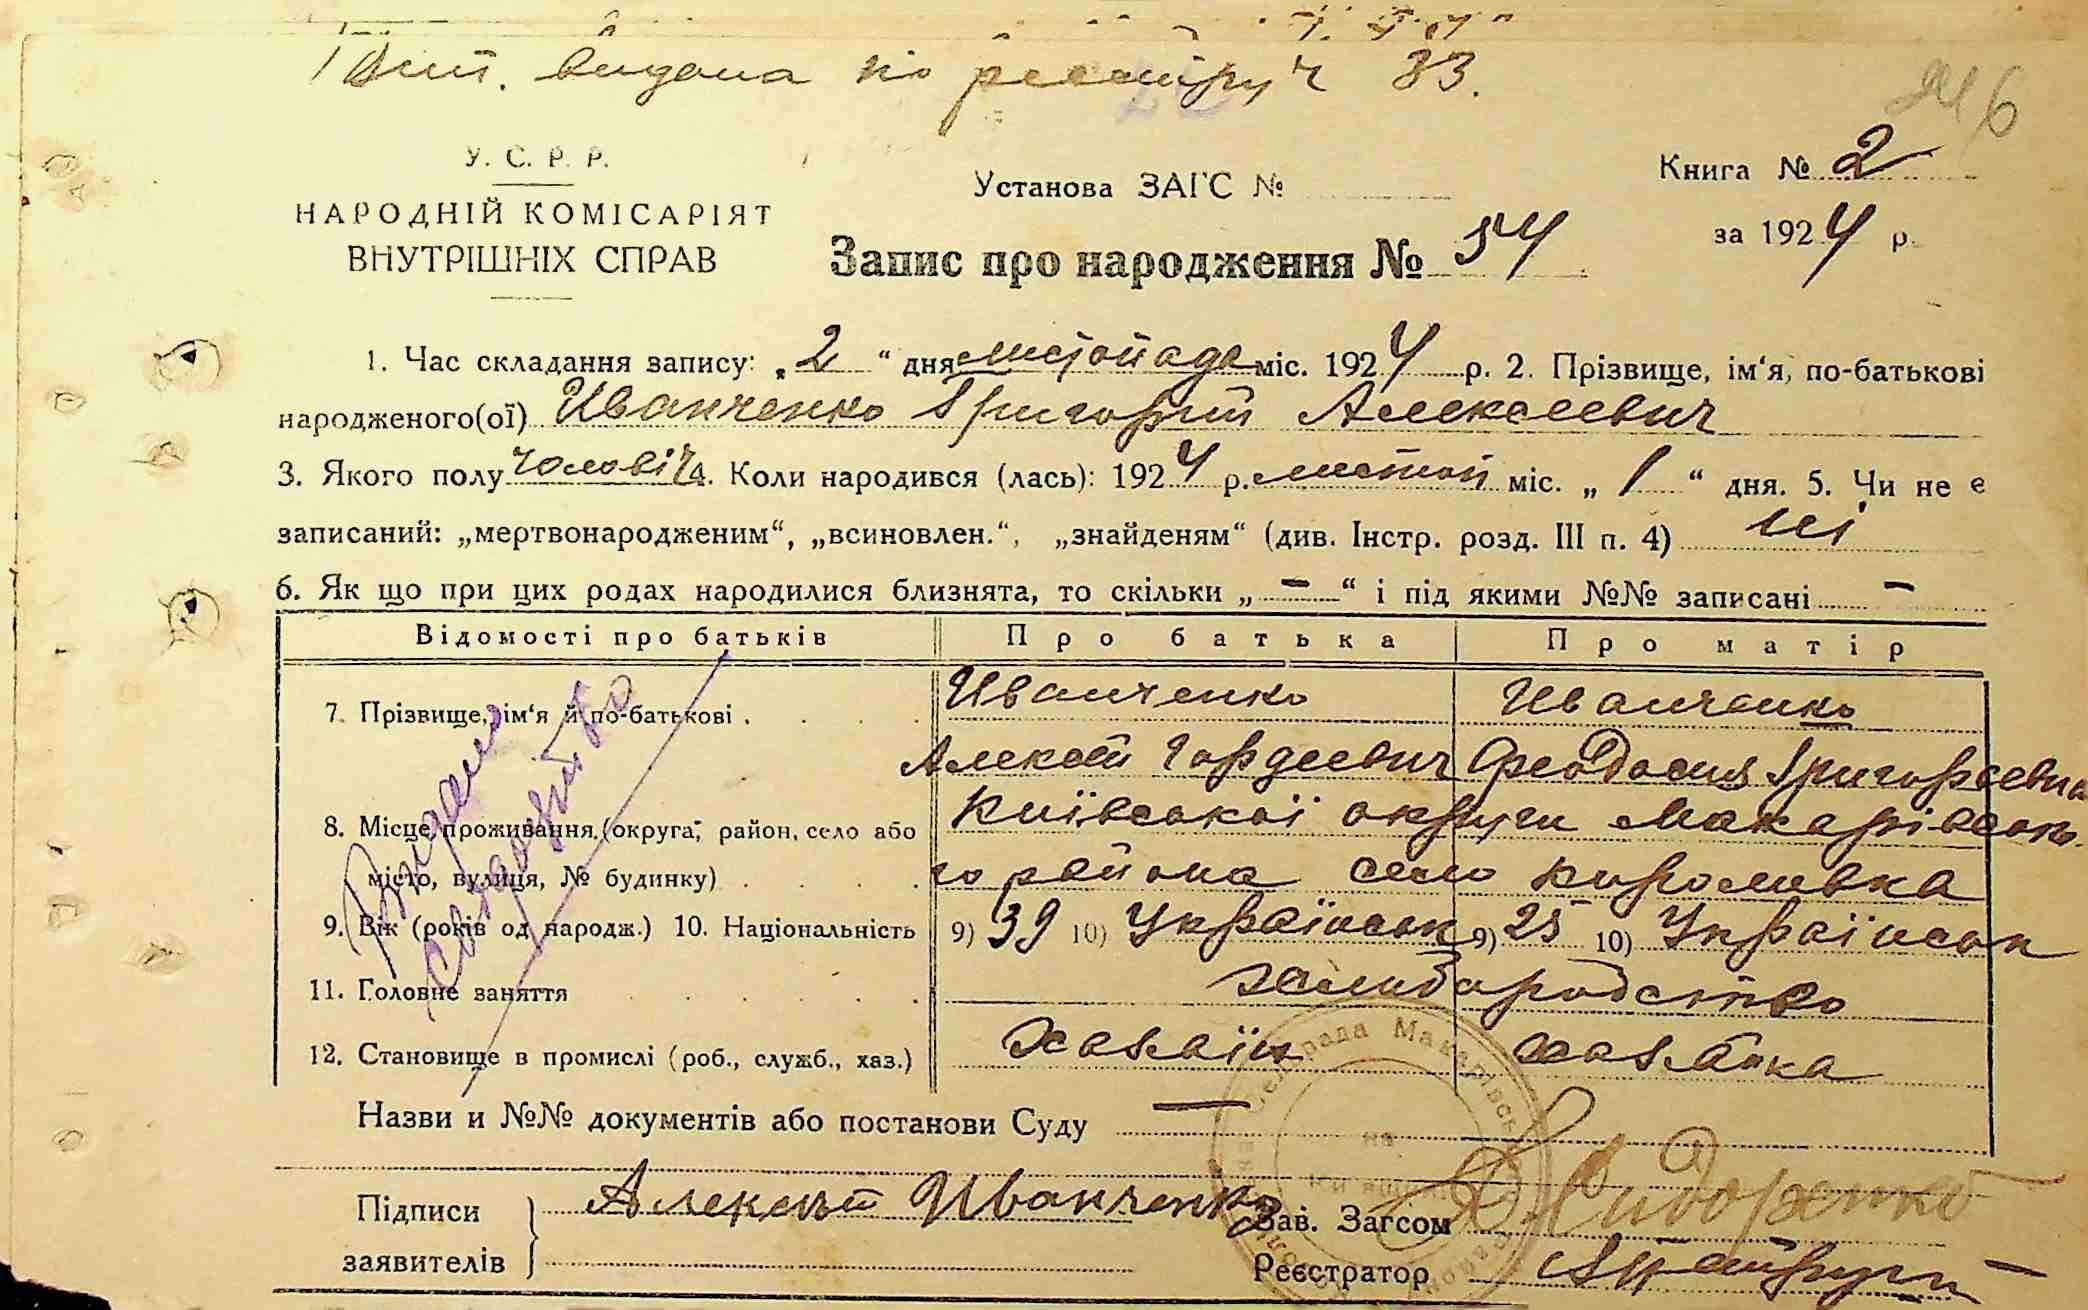 видана по реєстру ч 33.
216
У. С. Р. Р.
НАРОДНІЙ КОМІСАРІЯТ
ВНУТРІШНІХ СПРАВ
Установа ЗАГС №
Книга № 2
за 1924 р.
Запис про народження № 54
1. Час складання запису: „2“ дня листопада міс. 1924 р. 2. Прізвище, ім‘я, по-батькові
народженого(ої) Иванченко Григорий Алексеевич
3. Якого полу чоловіч 4. Коли народився (лась): 1924 р. листоп міс. „1“ дня. 5. Чи не є
записаний: „мертвонародженим“, „всиновлен.“, „знайденям“ (див. Інстр. розд. III п. 4) ні
6. Як що при цих родах народилися близнята, то скільки „—“ і під якими №№ записані —
Відомості про батьків Про батька Про матір
7. Прізвище, ім‘я й по-батькові . Иванченко Иванченко
Алексей Гордеевич Феодосия Григорьевна
8. Місце проживання (округа, район, село або Київської округи Макарівсько
місто, вулиця, № будинку) го района село Королівка
9. Вік (років од народж.) 10. Національність 9) 39 10) Українськ 9) 25 10) Українськ
11. Головне заняття хлиборобство
12. Становище в промислі (роб., служб., хаз.) Хазаїн хазяйка
Видано
свідоцтво
Назви и №№ документів або постанови Суду —
Підписи заявителів Алексей Иванченко
Зав. Загсом Сидоренко
Реєстратор